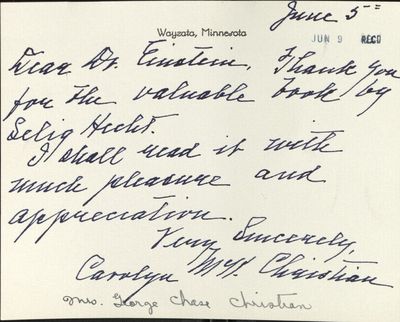 June 5th
Wayzata, Minnesota
JUN 9 REC'D
Dear Dr. Einstein. Thank you
for the valuable book by
Selig Hecht.
I shall read it with
much pleasure and
appreciation.
Very Sincerely,
Carolyn McK. Christian
Mrs. George Chase Christian